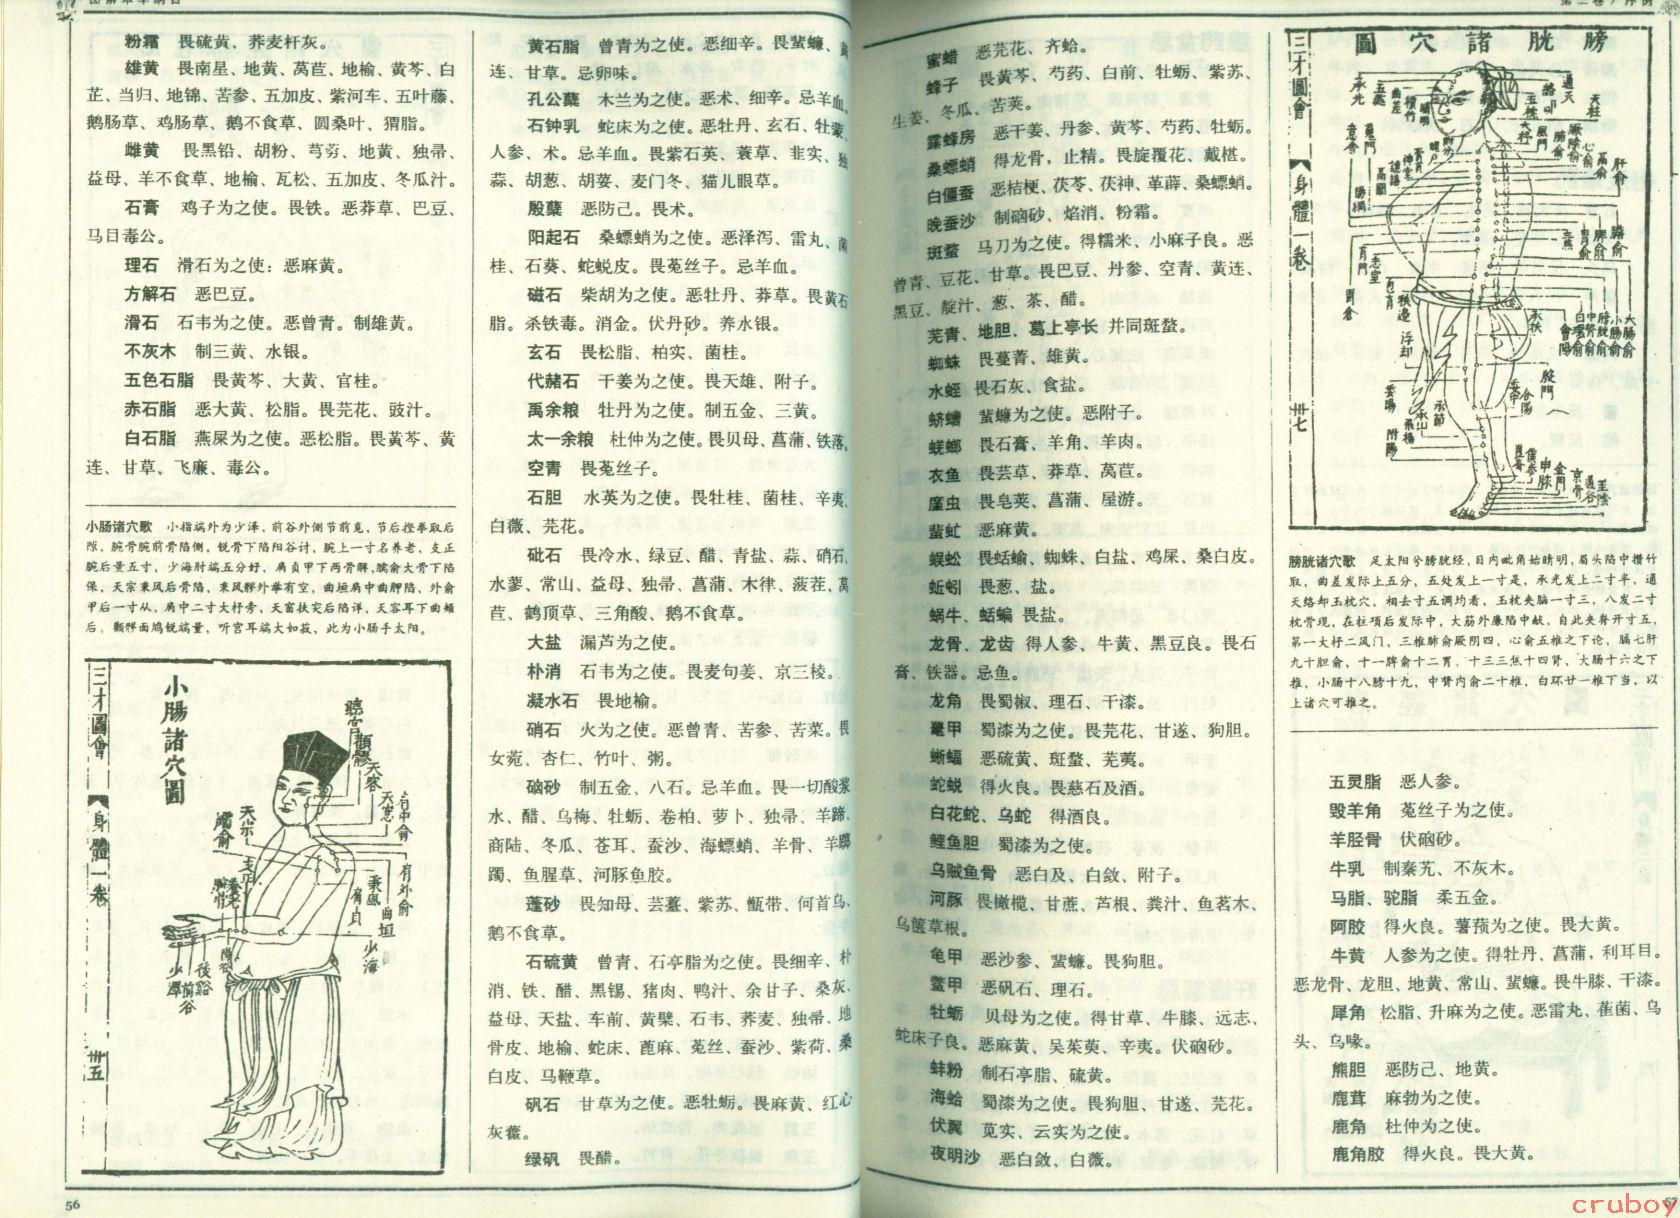 粉霜 畏硫黄、荞麦杆灰。
雄黄 畏南星、地黄、莴苣、地榆、黄芩、白
芷、当归、地锦、苦参、五加皮、紫河车、五叶藤、
鹅肠草、鸡肠草、鹅不食草、圆桑叶、猬脂。
雌黄 畏黑铅、胡粉、芎䓖、地黄、独帚、
益母、羊不食草、地榆、瓦松、五加皮、冬瓜汁。
石膏 鸡子为之使。畏铁。恶莽草、巴豆、
马目毒公。
理石 滑石为之使：恶麻黄。
方解石 恶巴豆。
滑石 石韦为之使。恶曾青。制雄黄。
不灰木 制三黄、水银。
五色石脂 畏黄芩、大黄、官桂。
赤石脂 恶大黄、松脂。畏芫花、豉汁。
白石脂 燕屎为之使。恶松脂。畏黄芩、黄
连、甘草、飞廉、毒公。
小肠诸穴歌 小指端外为少泽，前谷外侧节前觅，节后捏拳取后
隙，腕骨腕前骨陷侧，锐骨下陷阳谷讨，腕上一寸名养老，支正
腕后量五寸，少海肘端五分好，肩贞甲下两骨解，臑俞大骨下陷
保，天宗秉风后骨陷，秉风髎外举有空，曲垣肩中曲胛陷，外俞
甲后一寸从，肩中二寸大杼旁，天窗扶突后陷详，天容耳下曲颊
后，颧髎面鸠锐端量，听宫耳端大如菽，此为小肠手太阳。
三才圖會
身體一卷
卅五
小腸諸穴圖
聽宫
顴髎
天容
天窓
肩中俞
肩外俞
天宗
臑俞
秉風
曲垣
肩貞
支正
養老
少海
陽谷
後谿
前谷
少澤
56
黄石脂 曾青为之使。恶细辛。畏蜚蠊、黄
连、甘草。忌卵味。
孔公蘖 木兰为之使。恶术、细辛。忌羊血。
石钟乳 蛇床为之使。恶牡丹、玄石、牡蒙、
人参、术。忌羊血。畏紫石英、蓑草、韭实、独
蒜、胡葱、胡荽、麦门冬、猫儿眼草。
殷蘖 恶防己。畏术。
阳起石 桑螵蛸为之使。恶泽泻、雷丸、菌
桂、石葵、蛇蜕皮。畏菟丝子。忌羊血。
磁石 柴胡为之使。恶牡丹、莽草。畏黄石
脂。杀铁毒。消金。伏丹砂。养水银。
玄石 畏松脂、柏实、菌桂。
代赭石 干姜为之使。畏天雄、附子。
禹余粮 牡丹为之使。制五金、三黄。
太一余粮 杜仲为之使。畏贝母、菖蒲、铁落。
空青 畏菟丝子。
石胆 水英为之使。畏牡桂、菌桂、辛夷、
白薇、芫花。
砒石 畏冷水、绿豆、醋、青盐、蒜、硝石、
水蓼、常山、益母、独帚、菖蒲、木律、菠茬、莴
苣、鹤顶草、三角酸、鹅不食草。
大盐 漏芦为之使。
朴消 石韦为之使。畏麦句姜、京三棱。
凝水石 畏地榆。
硝石 火为之使。恶曾青、苦参、苦菜。畏
女菀、杏仁、竹叶、粥。
硇砂 制五金、八石。忌羊血。畏一切酸浆
水、醋、乌梅、牡蛎、卷柏、萝卜、独帚、羊蹄、
商陆、冬瓜、苍耳、蚕沙、海螵蛸、羊骨、羊踯
躅、鱼腥草、河豚鱼胶。
蓬砂 畏知母、芸薹、紫苏、甑带、何首乌、
鹅不食草。
石硫黄 曾青、石亭脂为之使。畏细辛、朴
消、铁、醋、黑锡、猪肉、鸭汁、余甘子、桑灰、
益母、天盐、车前、黄檗、石韦、荞麦、独帚、地
骨皮、地榆、蛇床、蓖麻、菟丝、蚕沙、紫荷、桑
白皮、马鞭草。
矾石 甘草为之使。恶牡蛎。畏麻黄、红心
灰藋。
绿矾 畏醋。
蜜蜡 恶芫花、齐蛤。
蜂子 畏黄芩、芍药、白前、牡蛎、紫苏、
生姜、冬瓜、苦荬。
露蜂房 恶干姜、丹参、黄芩、芍药、牡蛎。
桑螵蛸 得龙骨，止精。畏旋覆花、戴椹。
白僵蚕 恶桔梗、茯苓、茯神、萆薢、桑螵蛸。
晚蚕沙 制硇砂、焰消、粉霜。
斑蝥 马刀为之使。得糯米、小麻子良。恶
曾青、豆花、甘草。畏巴豆、丹参、空青、黄连、
黑豆、靛汁、葱、茶、醋。
芫青、地胆、葛上亭长 并同斑蝥。
蜘蛛 畏蔓菁、雄黄。
水蛭 畏石灰、食盐。
蛴螬 蜚蠊为之使。恶附子。
蜣螂 畏石膏、羊角、羊肉。
衣鱼 畏芸草、莽草、莴苣。
䗪虫 畏皂荚、菖蒲、屋游。
蜚虻 恶麻黄。
蜈蚣 畏蛞蝓、蜘蛛、白盐、鸡屎、桑白皮。
蚯蚓 畏葱、盐。
蜗牛、蛞蝓 畏盐。
龙骨、龙齿 得人参、牛黄、黑豆良。畏石
膏、铁器。忌鱼。
龙角 畏蜀椒、理石、干漆。
鼍甲 蜀漆为之使。畏芫花、甘遂、狗胆。
蜥蝠 恶硫黄、斑蝥、芜荑。
蛇蜕 得火良。畏慈石及酒。
白花蛇、乌蛇 得酒良。
鲤鱼胆 蜀漆为之使。
乌贼鱼骨 恶白及、白敛、附子。
河豚 畏橄榄、甘蔗、芦根、粪汁、鱼茗木、
乌篋草根。
龟甲 恶沙参、蜚蠊。畏狗胆。
鳖甲 恶矾石、理石。
牡蛎 贝母为之使。得甘草、牛膝、远志、
蛇床子良。恶麻黄、吴茱萸、辛夷。伏硇砂。
蚌粉 制石亭脂、硫黄。
海蛤 蜀漆为之使。畏狗胆、甘遂、芫花。
伏翼 苋实、云实为之使。
夜明沙 恶白敛、白薇。
膀胱諸穴圖
三才圖會
身體一卷
卅七
膀胱诸穴歌 足太阳兮膀胱经，目内眦角始睛明，眉头陷中攒竹
取，曲差发际上五分，五处发上一寸是，承光发上二寸半，通
天络却玉枕穴，相去寸五调均看，玉枕夹脑一寸三，八发二寸
枕骨现，在柱项后发际中，大筋外廉陷中献，自此夹脊开寸五，
第一大杼二风门，三椎肺俞厥阴四，心俞五椎之下论，膈七肝
九十胆俞，十一脾俞十二胃，十三三焦十四肾，大肠十六之下
推，小肠十八膀十九，中膂内俞二十椎，白环廿一椎下当，以
上诸穴可推之。
五灵脂 恶人参。
羖羊角 菟丝子为之使。
羊胫骨 伏硇砂。
牛乳 制秦艽、不灰木。
马脂、驼脂 柔五金。
阿胶 得火良。薯蓣为之使。畏大黄。
牛黄 人参为之使。得牡丹、菖蒲，利耳目。
恶龙骨、龙胆、地黄、常山、蜚蠊。畏牛膝、干漆。
犀角 松脂、升麻为之使。恶雷丸、雚菌、乌
头、乌喙。
熊胆 恶防己、地黄。
鹿茸 麻勃为之使。
鹿角 杜仲为之使。
鹿角胶 得火良。畏大黄。
57
cruboy